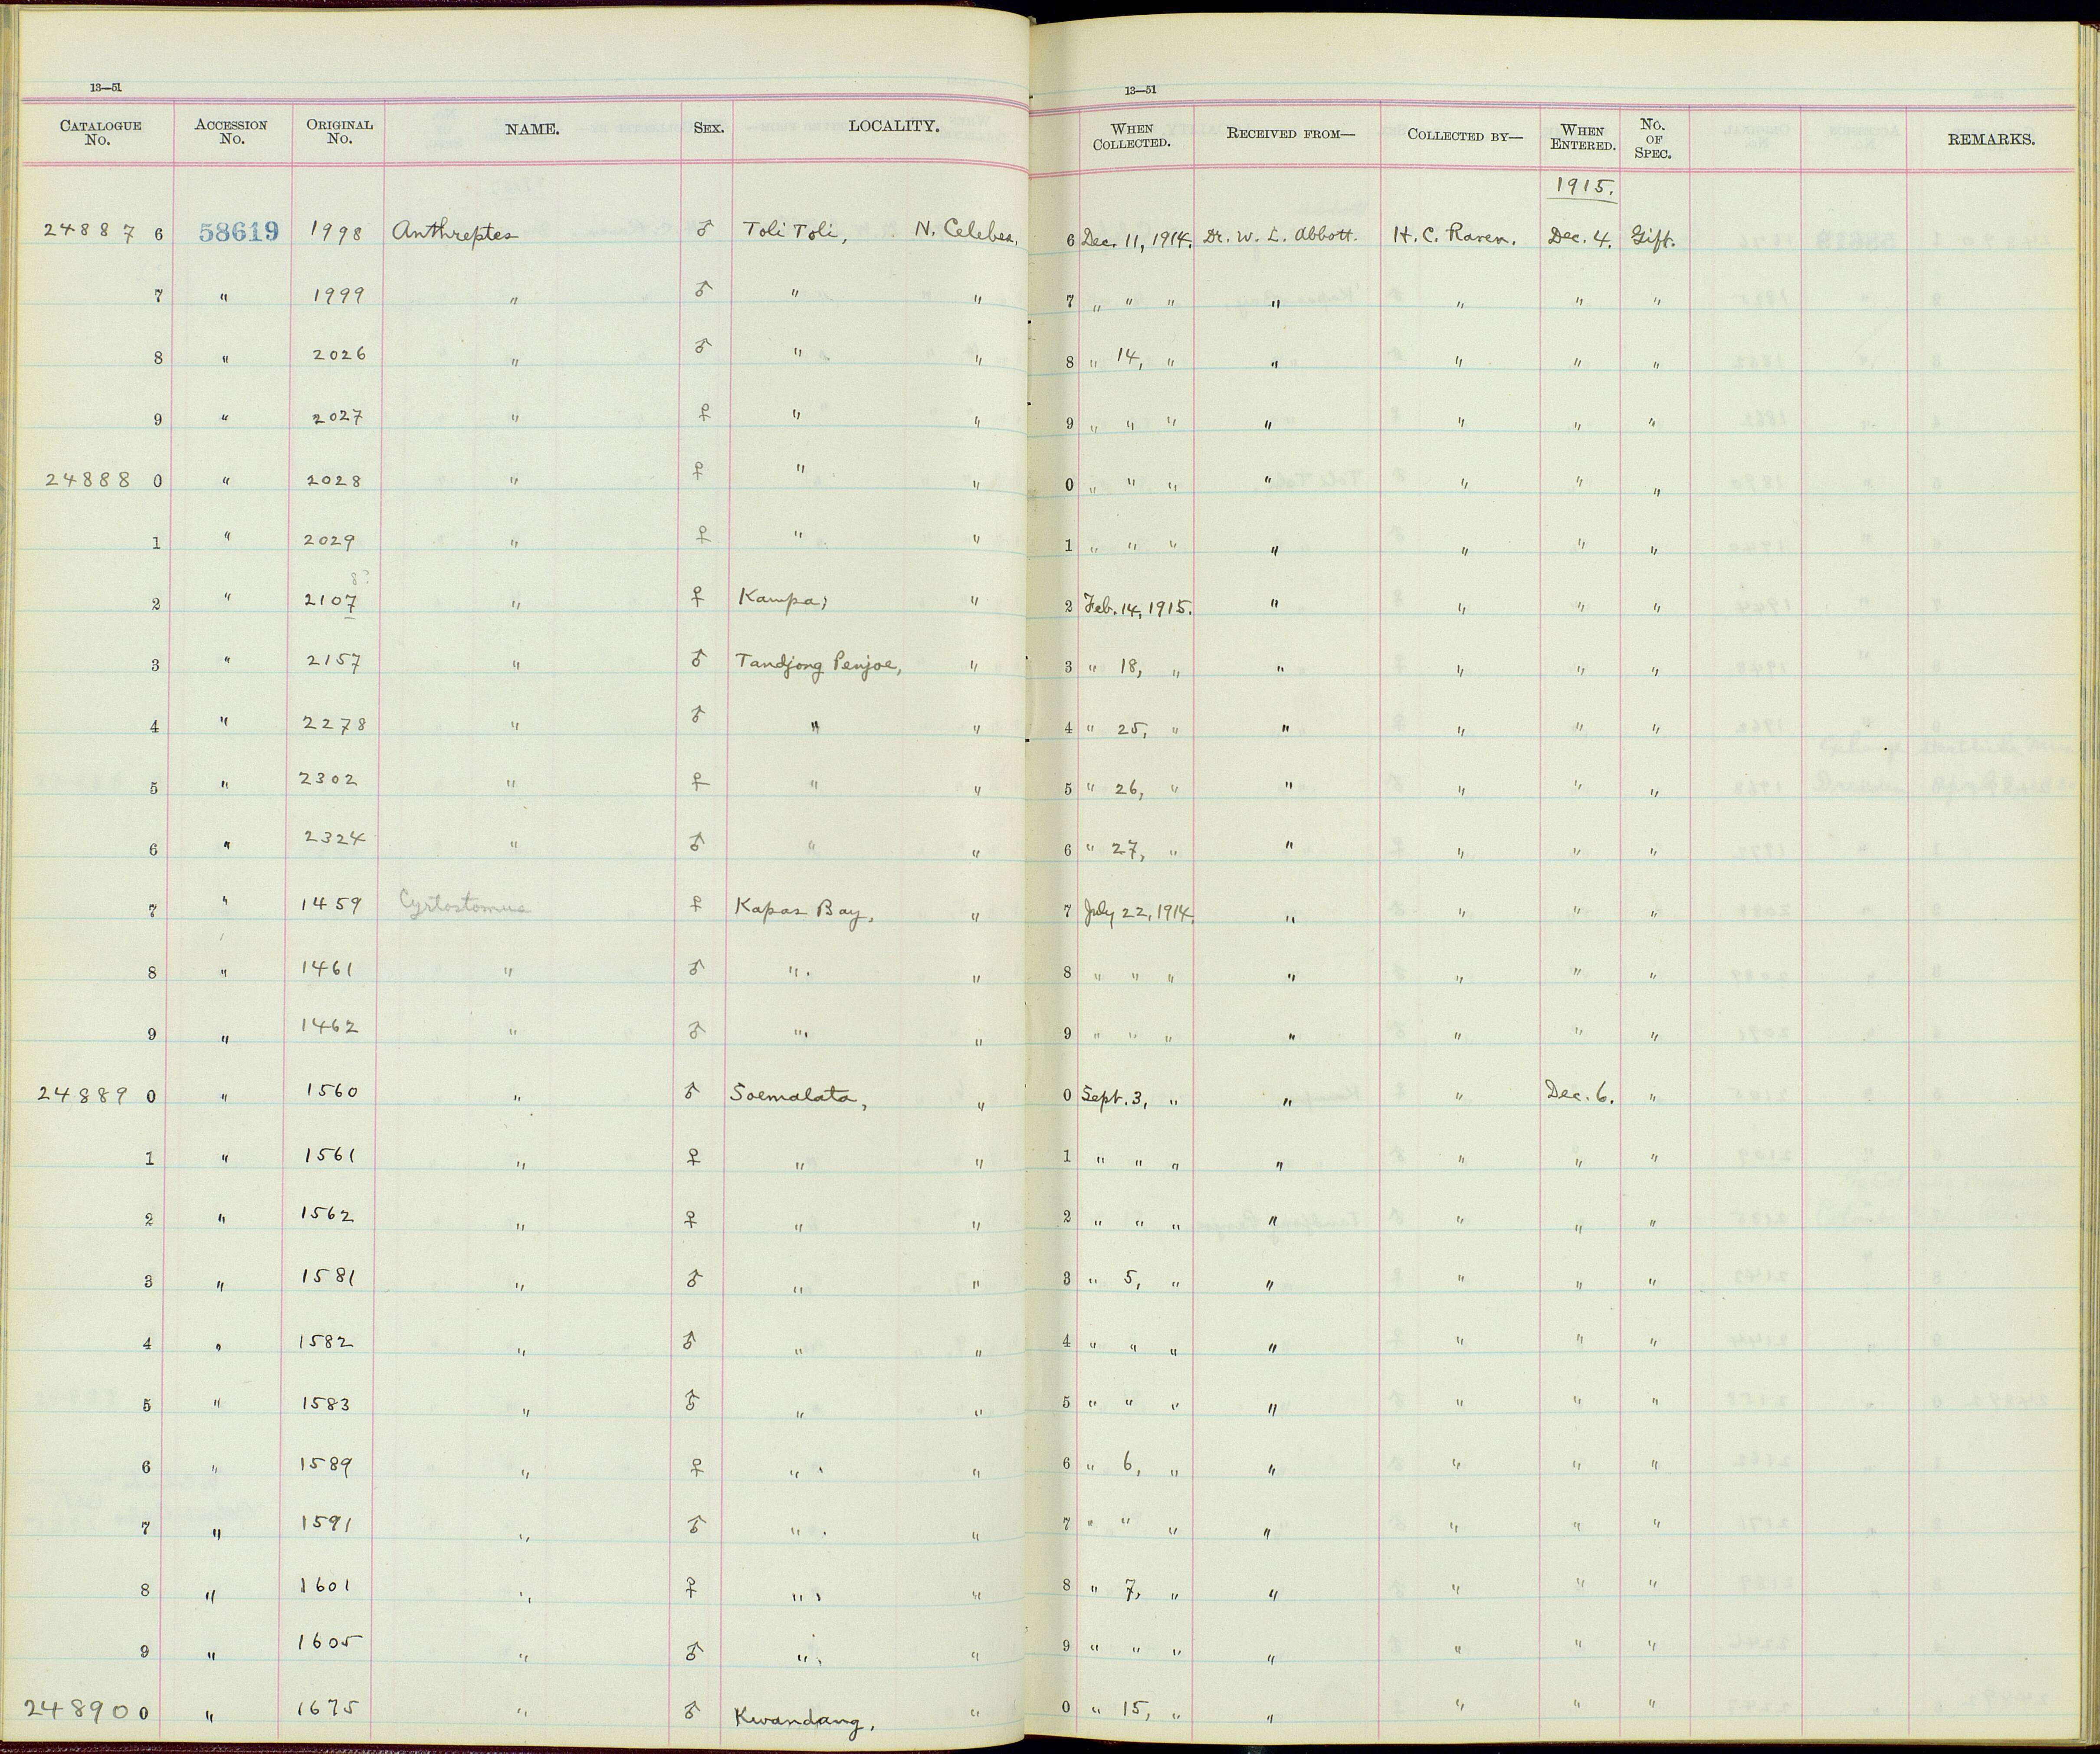 13—51 13—51
CATALOGUE No. ACCESSION No. ORIGINAL No. NAME. SEX. LOCALITY. WHEN COLLECTED. RECEIVED FROM— COLLECTED BY— WHEN ENTERED. No. OF SPEC. REMARKS.
1915.
24887 6 58619 1998 Anthreptes ♂ Toli Toli, N. Celebes, 6 Dec. 11, 1914. Dr. W. L. Abbott. H. C. Raven. Dec. 4. Gift.
7 " 1999 " ♂ " " 7 " " " " " " "
8 " 2026 " ♂ " " 8 " 14, " " " " "
9 " 2027 " ♀ " " 9 " " " " " " "
24888 0 " 2028 " ♀ " " 0 " " " " " " "
1 " 2029 " ♀ " " 1 " " " " " " "
8?
2 " 2107 " ♀ Kampa, " 2 Feb. 14, 1915. " " " "
3 " 2157 " ♂ Tandjong Penjoe, " 3 " 18, " " " " "
4 " 2278 " ♂ " " 4 " 25, " " " " "
5 " 2302 " ♀ " " 5 " 26, " " " " "
6 " 2324 " ♂ " " 6 " 27, " " " " "
7 " 1459 Cyrtostomus ♀ Kapas Bay, " 7 July 22, 1914. " " " "
8 " 1461 " ♂ " " 8 " " " " " " "
9 " 1462 " ♂ " " 9 " " " " " " "
24889 0 " 1560 " ♂ Soemalata, " 0 Sept. 3, " " " Dec. 6. "
1 " 1561 " ♀ " " 1 " " " " " " "
2 " 1562 " ♀ " " 2 " " " " " " "
3 " 1581 " ♂ " " 3 " 5, " " " " "
4 " 1582 " ♂ " " 4 " " " " " " "
5 " 1583 " ♂ " " 5 " " " " " " "
6 " 1589 " ♀ " " 6 " 6, " " " " "
7 " 1591 " ♂ " " 7 " " " " " " "
8 " 1601 " ♀ " " 8 " 7, " " " " "
9 " 1605 " ♂ " " 9 " " " " " " "
24890 0 " 1675 " ♂ Kwandang, " 0 " 15, " " " " "